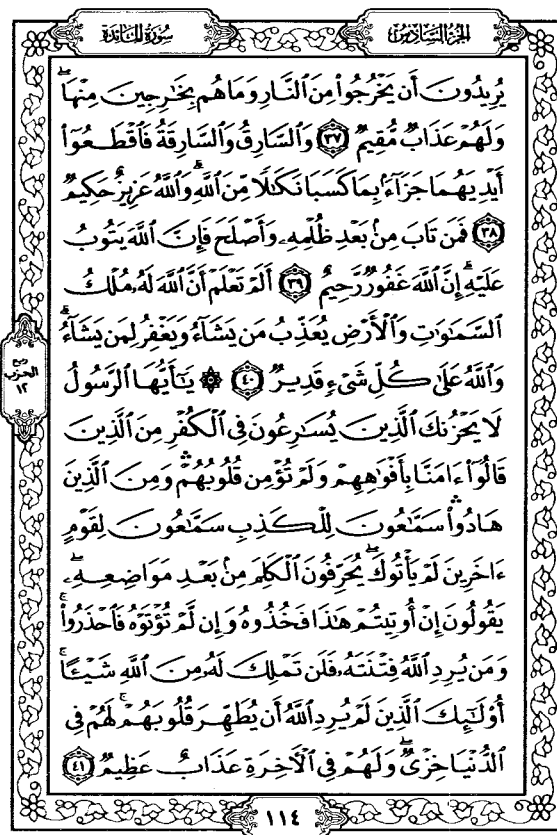 سُورَةُ المَائدة
الجُزءُ السَّادِسُ
يُرِيدُونَ أَن يَخْرُجُوا۟ مِنَ ٱلنَّارِ وَمَا هُم بِخَٰرِجِينَ مِنْهَاۖ
وَلَهُمْ عَذَابٌ مُّقِيمٌ ٣٧ وَٱلسَّارِقُ وَٱلسَّارِقَةُ فَٱقْطَعُوٓا۟
أَيْدِيَهُمَا جَزَآءَۢ بِمَا كَسَبَا نَكَٰلًا مِّنَ ٱللَّهِۗ وَٱللَّهُ عَزِيزٌ حَكِيمٌ
٣٨ فَمَن تَابَ مِنۢ بَعْدِ ظُلْمِهِۦ وَأَصْلَحَ فَإِنَّ ٱللَّهَ يَتُوبُ
عَلَيْهِۗ إِنَّ ٱللَّهَ غَفُورٌ رَّحِيمٌ ٣٩ أَلَمْ تَعْلَمْ أَنَّ ٱللَّهَ لَهُۥ مُلْكُ
ٱلسَّمَٰوَٰتِ وَٱلْأَرْضِ يُعَذِّبُ مَن يَشَآءُ وَيَغْفِرُ لِمَن يَشَآءُۗ
وَٱللَّهُ عَلَىٰ كُلِّ شَىْءٍ قَدِيرٌ ٤٠ ۞ يَٰٓأَيُّهَا ٱلرَّسُولُ
لَا يَحْزُنكَ ٱلَّذِينَ يُسَٰرِعُونَ فِى ٱلْكُفْرِ مِنَ ٱلَّذِينَ
قَالُوٓا۟ ءَامَنَّا بِأَفْوَٰهِهِمْ وَلَمْ تُؤْمِن قُلُوبُهُمْۛ وَمِنَ ٱلَّذِينَ
هَادُوا۟ۛ سَمَّٰعُونَ لِلْكَذِبِ سَمَّٰعُونَ لِقَوْمٍ
ءَاخَرِينَ لَمْ يَأْتُوكَۖ يُحَرِّفُونَ ٱلْكَلِمَ مِنۢ بَعْدِ مَوَاضِعِهِۦۖ
يَقُولُونَ إِنْ أُوتِيتُمْ هَٰذَا فَخُذُوهُ وَإِن لَّمْ تُؤْتَوْهُ فَٱحْذَرُوا۟ۚ
وَمَن يُرِدِ ٱللَّهُ فِتْنَتَهُۥ فَلَن تَمْلِكَ لَهُۥ مِنَ ٱللَّهِ شَيْـًٔاۚ
أُو۟لَٰٓئِكَ ٱلَّذِينَ لَمْ يُرِدِ ٱللَّهُ أَن يُطَهِّرَ قُلُوبَهُمْۚ لَهُمْ فِى
ٱلدُّنْيَا خِزْىٌۖ وَلَهُمْ فِى ٱلْءَاخِرَةِ عَذَابٌ عَظِيمٌ ٤١
ربع
الحزب
١٢
١١٤